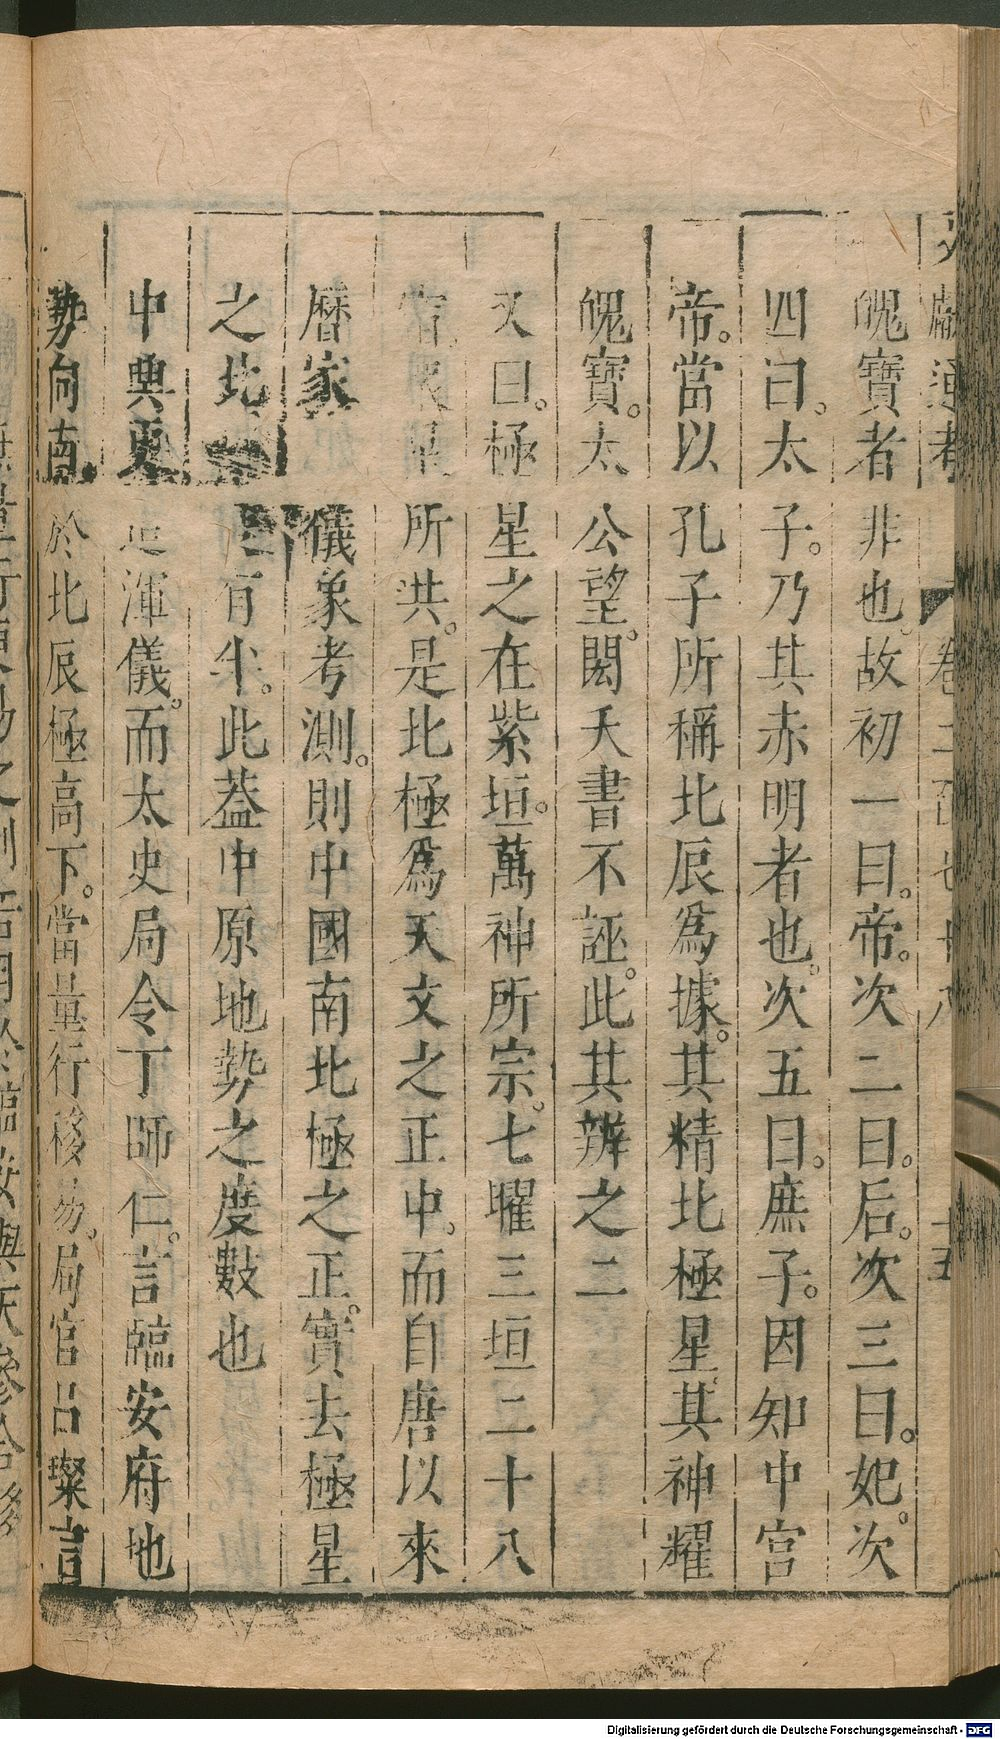 魄寶者非也。故初一曰。帝。次二曰。后。次三曰。妃。次
四曰。太子。乃其赤明者也。次五曰。庶子。因知中宫
帝。當以孔子所稱北辰爲據。其精北極星。其神耀
魄寶。太公望。閎夭書不誣。此其辨之二
又曰。極星之在紫垣。萬神所宗。七曜三垣二十八
宿。所拱。是北極爲天文之正中。而自唐以來
曆家儀象考測。則中國南北極之正。實去極星
之北有半。此葢中原地勢之度數也
中興更造渾儀。而太史局令丁師仁。言臨安府地
勢向南於北辰極高下。當量行移易。局官呂璨言
Digitalisierung gefördert durch die Deutsche Forschungsgemeinschaft - DFG